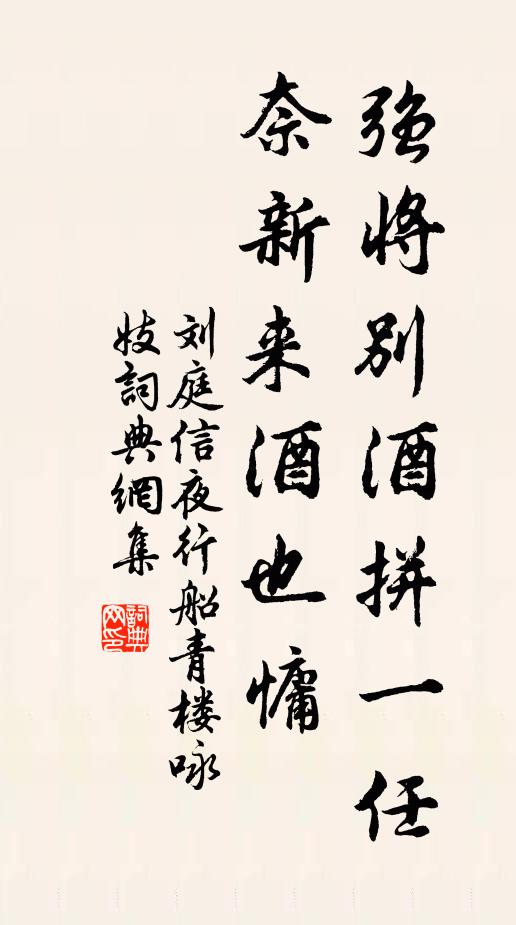 強將別酒拼一任
奈新来酒也慵
刘庭信夜行船青楼咏
妓詞典網集
詞典
网印